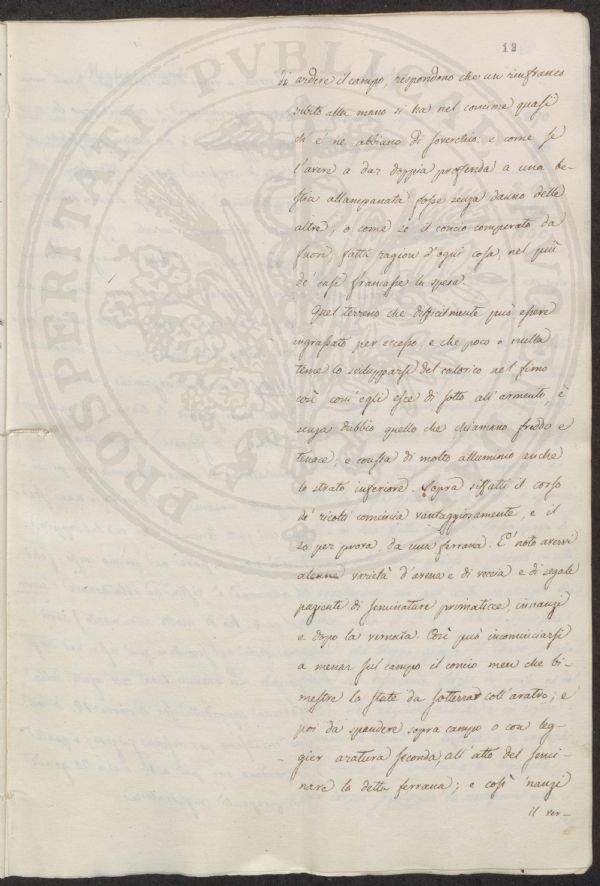 12
di ardere il campo, rispondono che un rinfranco
subito alla mano si ha nel concime quasi
ch'è ne abbiano di soverchio: e come se
l'avere a dar doppia profenda a una be-
stia allampanata fosse senza danno delle
altre, o come se il concio comperato da
fuori, fatta ragion d'ogni cosa, nel più
de' casi francasse la spesa.
Quel terreno che difficilmente può essere
ingrassato per eccesso, e che poco o nulla
teme lo svilupparsi del calorico nel fimo
così com'egli esce di sotto all'armento, è
senza dubbio quello che chiamano freddo e
tenace, e consta di molto alluminio anche
lo strato inferiore. Sopra siffatti il corso
de' ricolti comincia vantaggiosamente, e il
so per prova, da una ferrana. E' noto avervi
alcune varietà d'avena e di veccia e di segale
paziente di seminature primaticce, innanzi
e dopo la vernata. Così può incominciarsi
a menar sul campo il concio men che bi-
mestre la state da sotterrar coll'aratro; e
poi da spandere sopra campo o con leg-
gier aratura seconda, all'atto del semi-
nare la detta ferrana; e così 'nanzi
il ver-
PROSPERITATI PVBLICAE